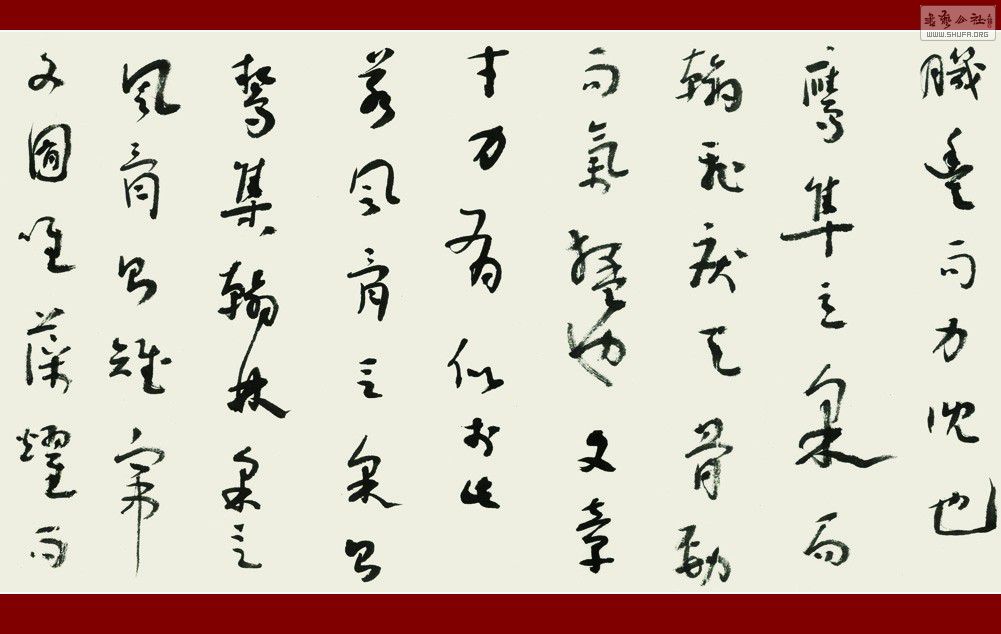 肌豐而力沈也
鷹隼乏采而
翰飛戾天骨勁
而氣猛也文章
才力有似於此
若風骨乏采則
鷙集翰林采乏
風骨則雉竄
文囿唯藻耀而
書藝公社
WWW.SHUFA.ORG